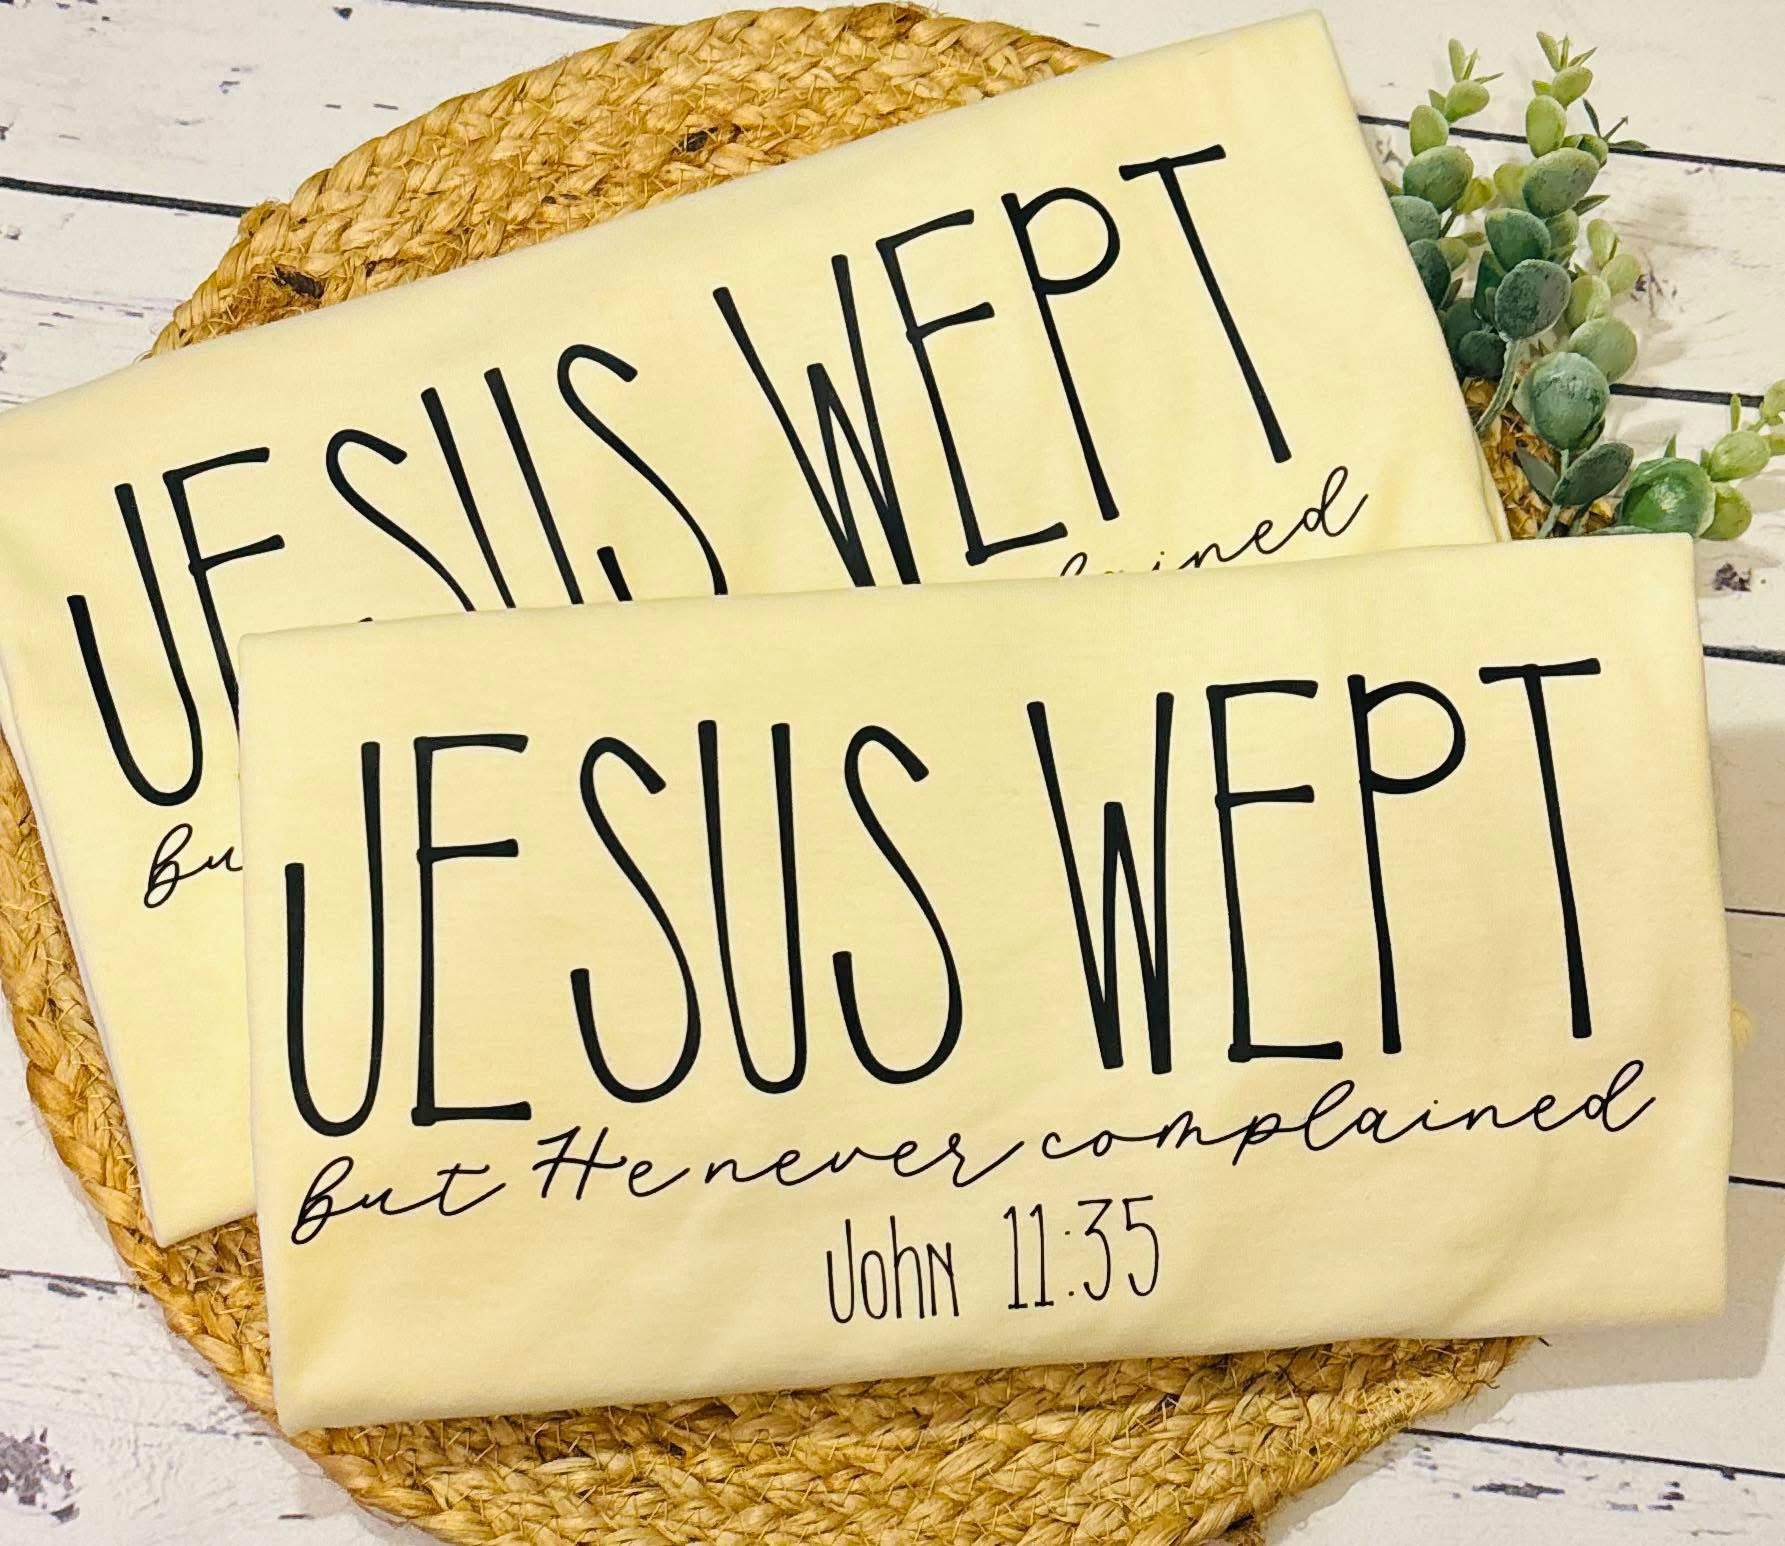 JESUS WEPT
but
JESUS WEPT
but He never complained
John 11:35